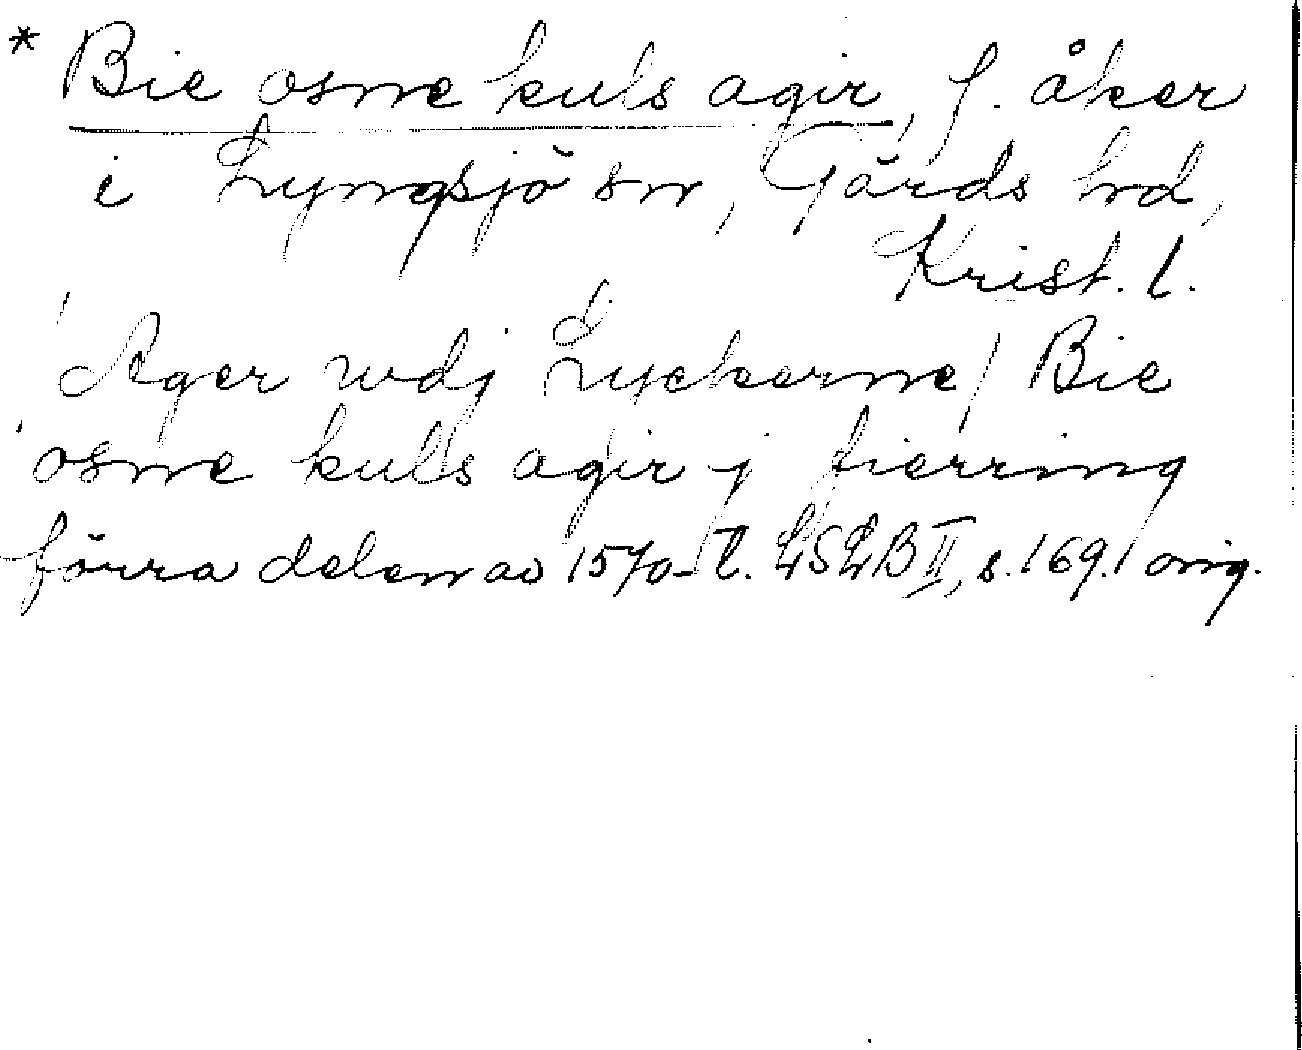 * Bie osme kuls agir, f. åker
i Lyngsjö sn, Gärds hd,
Krist. l.
Ager udj Lyckerne / Bie
osme kuls agir j fierring
förra delen av 1570-t. LSLB II, s. 169. orig.